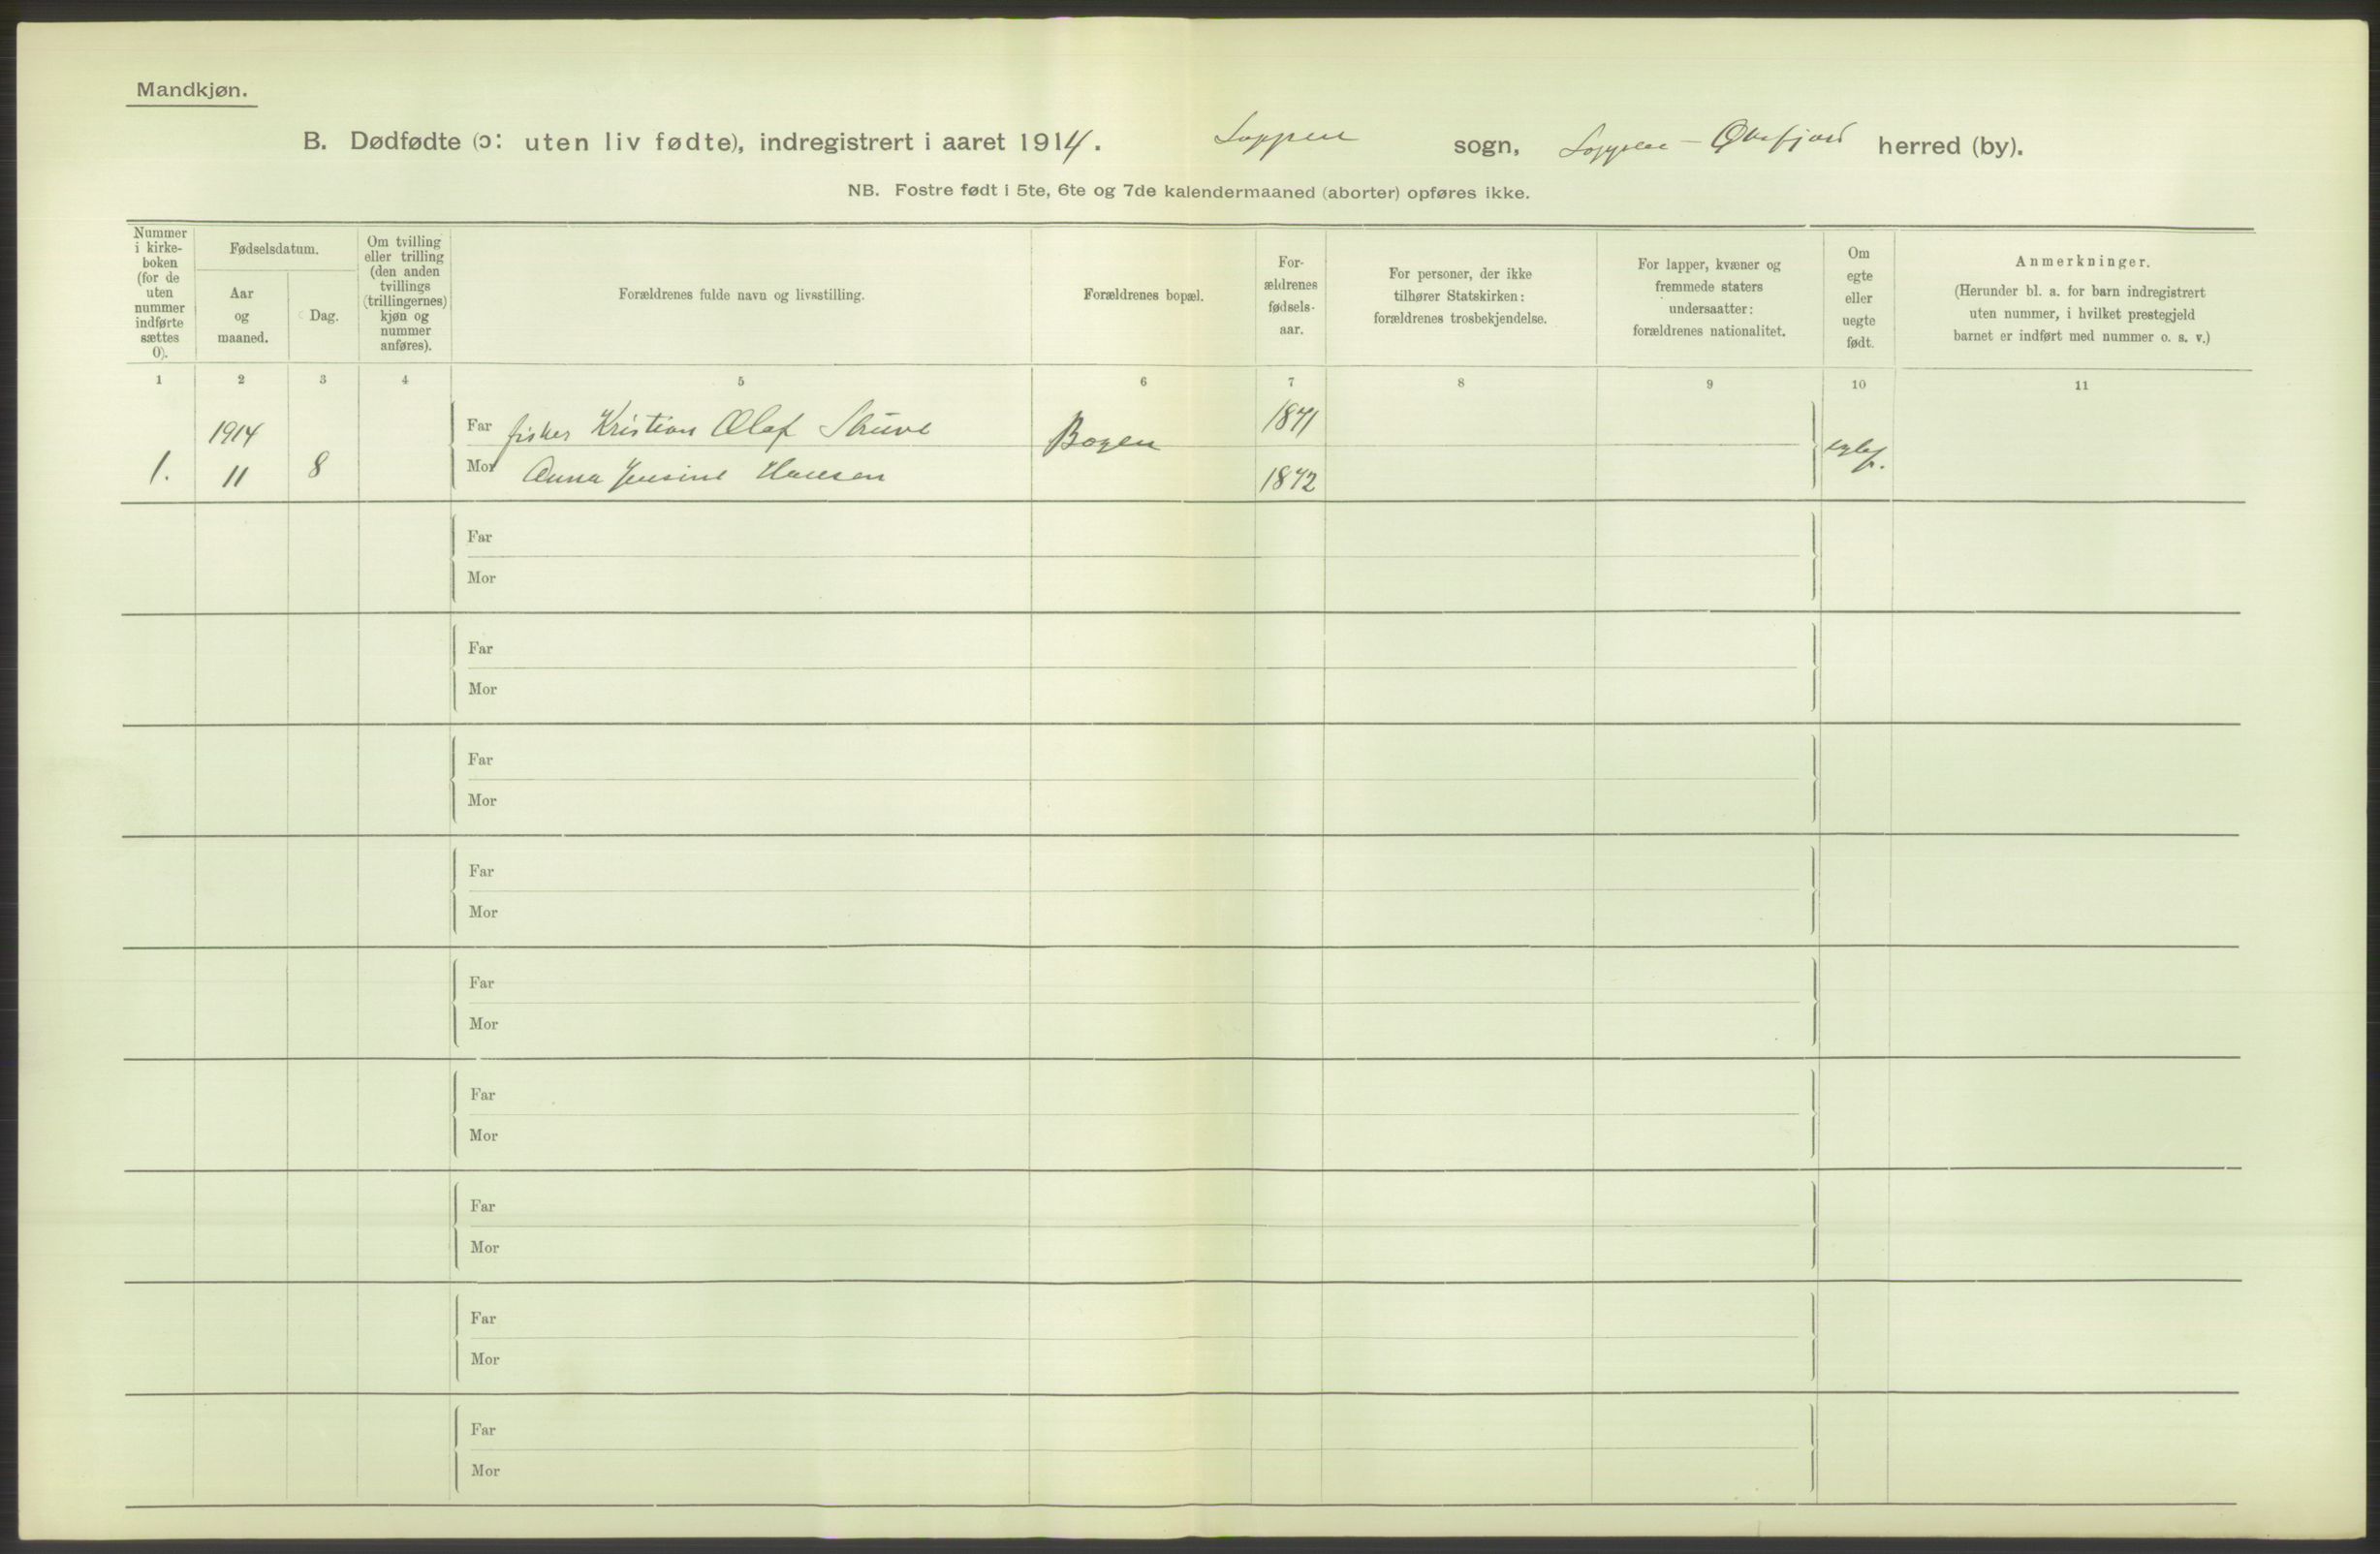 Mandkjøn.
B. Dødfødte (ɔ: uten liv fødte), indregistrert i aaret 1914. Loppen sogn, Loppen - Øksfjord herred (by).
NB. Fostre født i 5te, 6te og 7de kalendermaaned (aborter) opføres ikke.
Nummer
i kirke-
boken
(for de
uten
nummer
indførte
sættes
0).
Fødselsdatum.
Aar
og
maaned.
Dag.
Om tvilling
eller trilling
(den anden
tvillings
(trillingernes)
kjøn og
nummer
anføres).
Forældrenes fulde navn og livsstilling.
Forældrenes bopæl.
For-
ældrenes
fødsels-
aar.
For personer, der ikke
tilhører Statskirken:
forældrenes trosbekjendelse.
For lapper, kvæner og
fremmede staters
undersaatter:
forældrenes nationalitet.
Om
egte
eller
uegte
født.
Anmerkninger.
(Herunder bl. a. for barn indregistrert
uten nummer, i hvilket prestegjeld
barnet er indført med nummer o. s. v.)
1 2 3 4 5 6 7 8 9 10 11
1914 Far fisker Kristian Olaf Struve Bogen 1871
1. 11 8 Mor Anna Jensine Hansen 1872
Far
Mor
Far
Mor
Far
Mor
Far
Mor
Far
Mor
Far
Mor
Far
Mor
Far
Mor
Far
Mor